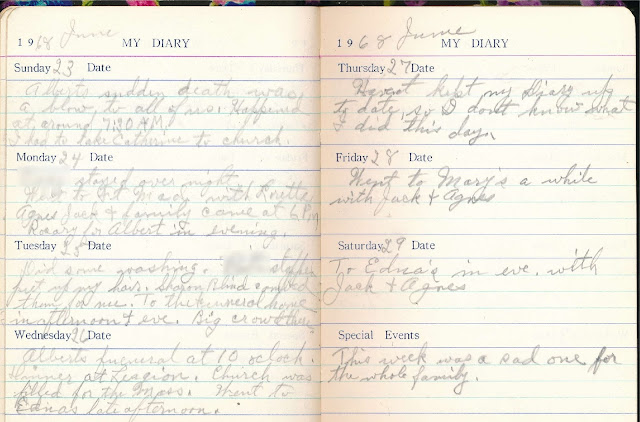 1968 June
MY DIARY
Sunday 23 Date
Alberts sudden death was
a blow to all of us. Happened
at around 7:30 A.M.
I had to take Catherine to church.
Monday 24 Date
stayed over night
Went to Ft. Mady with Loretta
Agnes Jack & family came at 6 P.M.
Rosary for Albert in evening.
Tuesday 25 Date
Did some washing.
put up my hair. Sharon Blind combed
them for me. To the funeral home
in afternoon & eve. Big crowd there
Wednesday 26 Date
Alberts funeral at 10 oclock.
Dinner at Legion. Church was
filled for the Mass. Went to
Ednas late afternoon.
1968 June
MY DIARY
Thursday 27 Date
Havent kept my Diary up
to date, so I dont know what
I did this day.
Friday 28 Date
Went to Mary's a while
with Jack & Agnes
Saturday 29 Date
To Edna's in eve. with
Jack & Agnes
Special Events
This week was a sad one for
the whole family.